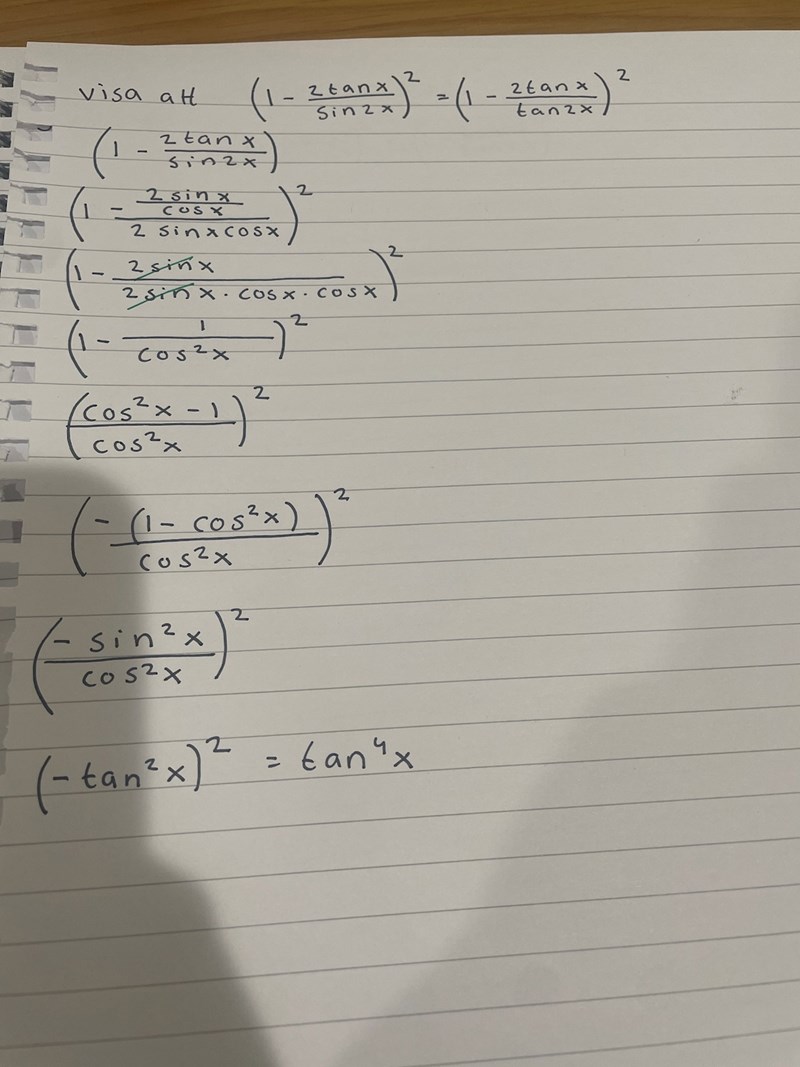 visa att (1 - 2tanx/sin2x)² = (1 - 2tanx/tan2x)²
(1 - 2tanx/sin2x)
(1 - (2sinx/cosx)/(2 sinxcosx))²
(1 - 2sinx/(2sinx · cosx · cosx))²
(1 - 1/cos²x)²
((cos²x - 1)/cos²x)²
(-(1 - cos²x)/cos²x)²
(-sin²x/cos²x)²
(-tan²x)² = tan⁴x